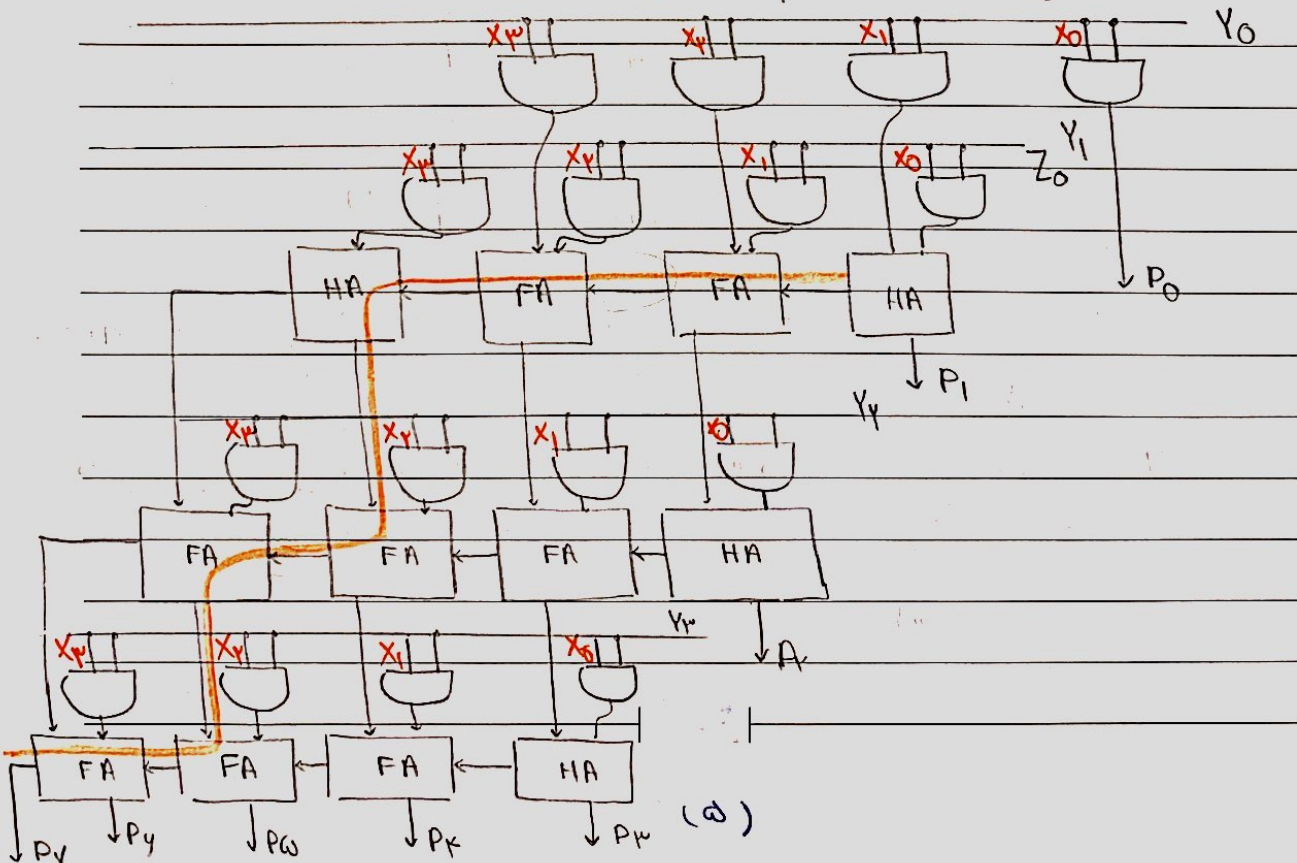 X۳ X۲ X۱ X۰ Y۰
Y۱
X۳ X۲ X۱ X۰ Z۰
HA FA FA HA P۰
P۱
X۳ X۲ X۱ X۰ Y۲
FA FA FA HA
Y۳
X۳ X۲ X۱ X۰
FA FA FA HA
P۷ P۶ P۵ P۴ P۳ (۵)